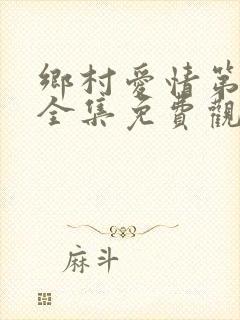 鄉村愛情第
全集免費觀
麻斗